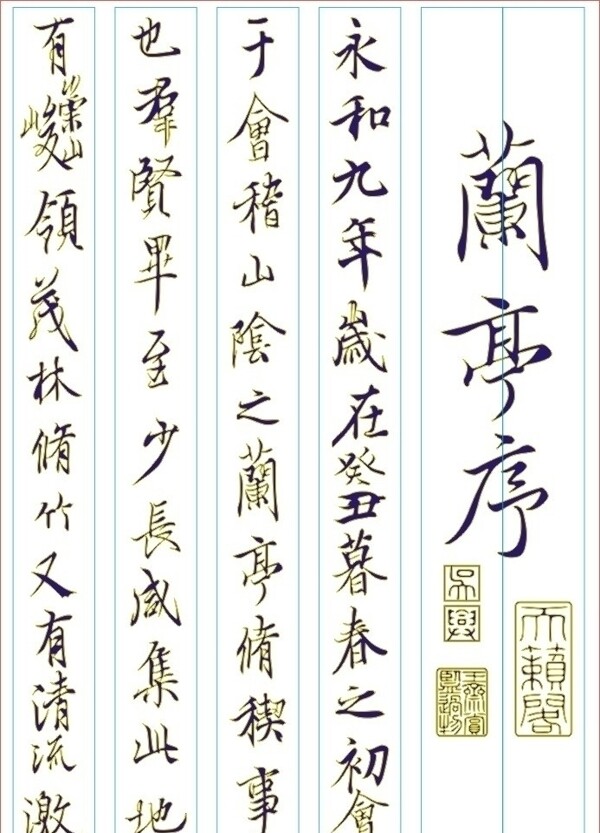 蘭亭序
吳興
天籟閣
永和九年歲在癸丑暮春之初會
于會稽山陰之蘭亭脩稧事
也群賢畢至少長咸集此地
有崇山峻領茂林脩竹又有清流激